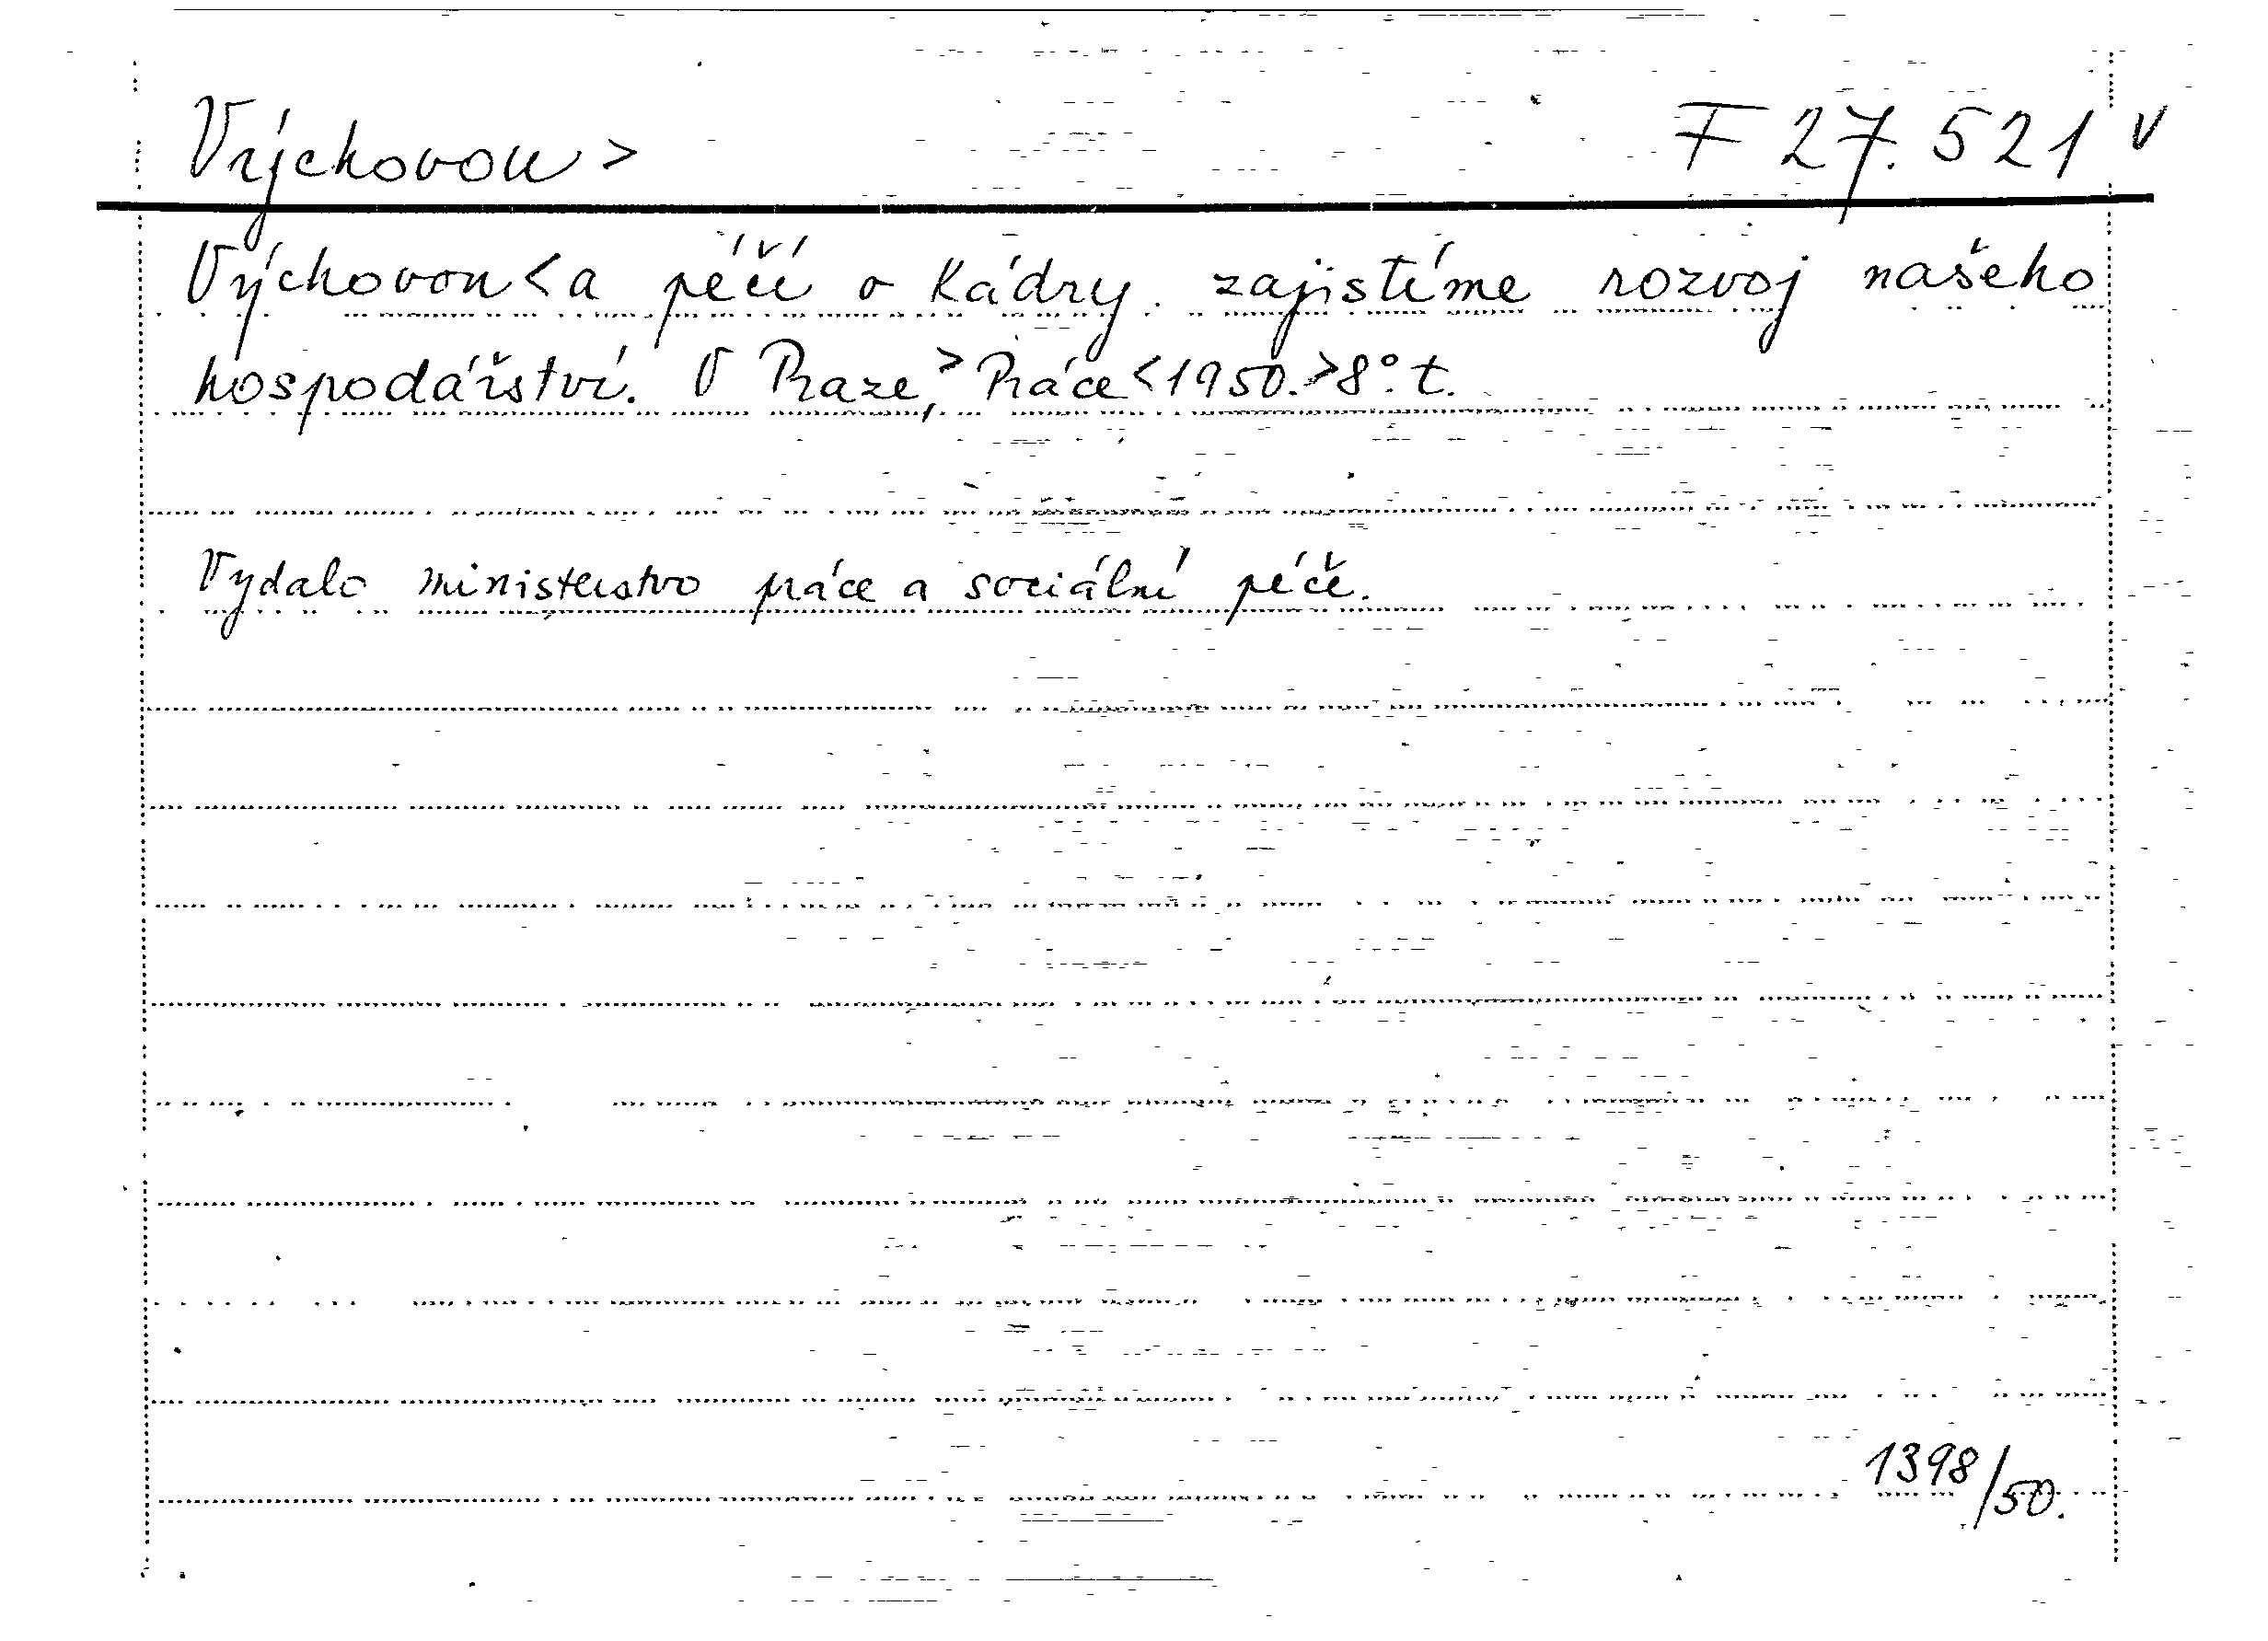 Výchovou > F 27.521 v
Výchovou < a péčí o kádry zajistíme rozvoj našeho
hospodářství. V Praze, > Práce < 1950. > 8°. t.
Vydalo ministerstvo práce a sociální péče.
1398/50.